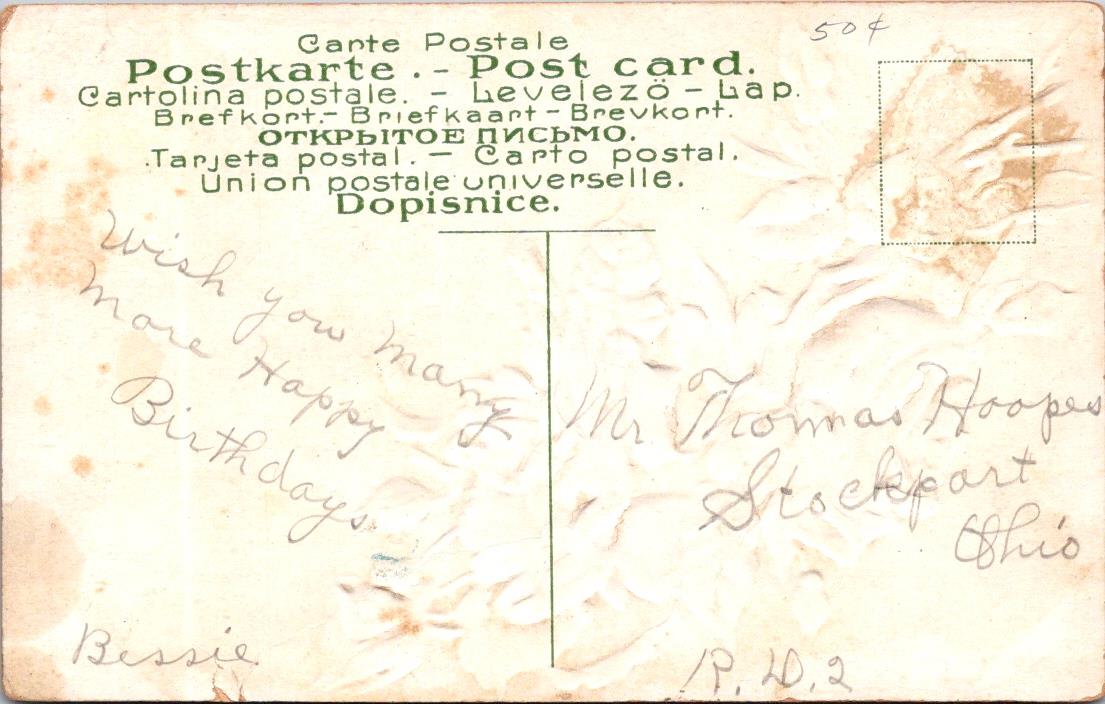 50¢
Carte Postale
Postkarte . - Post card.
Cartolina postale. - Levelezö - Lap.
Brefkort.- Briefkaart - Brevkort.
ОТКРЫТОЕ ПИСЬМО.
.Tarjeta postal. - Carto postal.
Union postale universelle.
Dopisnice.
Wish you many
more Happy
Birthdays
Bessie
Mr Thomas Hoopes
Stockport
Ohio
R.D.2